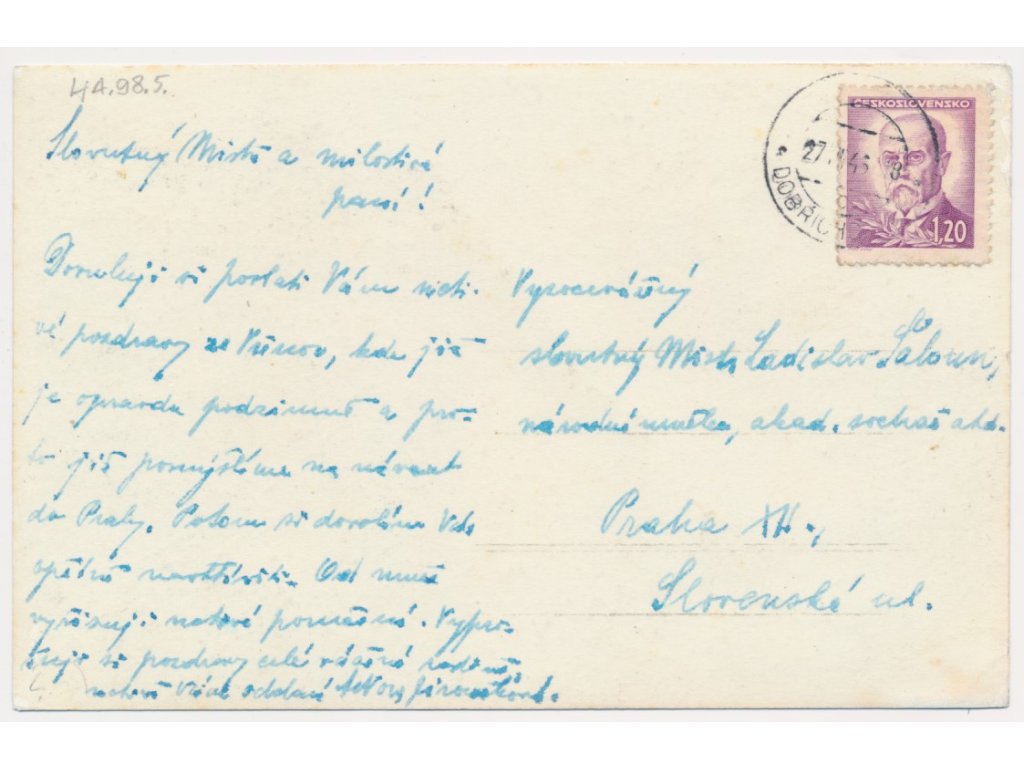 4A.98.5.
Slovutný Mistře a milostivá
paní!
Dovoluji si poslati Vám ucti-
vé pozdravy ze Všenor, kde již
je opravdu podzimně a pro-
to již pomýšlíme na návrat
do Prahy. Potom si dovolím Vás
opětně navštíviti. Od mne
vyřizuji
Vypro-
šuji si pozdravy celé vzácné rodině
vždy oddaní
Vysocevážený
slovutný Mistr Ladislav Šaloun,
národní umělec, akad. sochař atd.
Praha XII.,
Slovenská ul.
ČESKOSLOVENSKO
1,20
27. 46 8
DOBŘICH